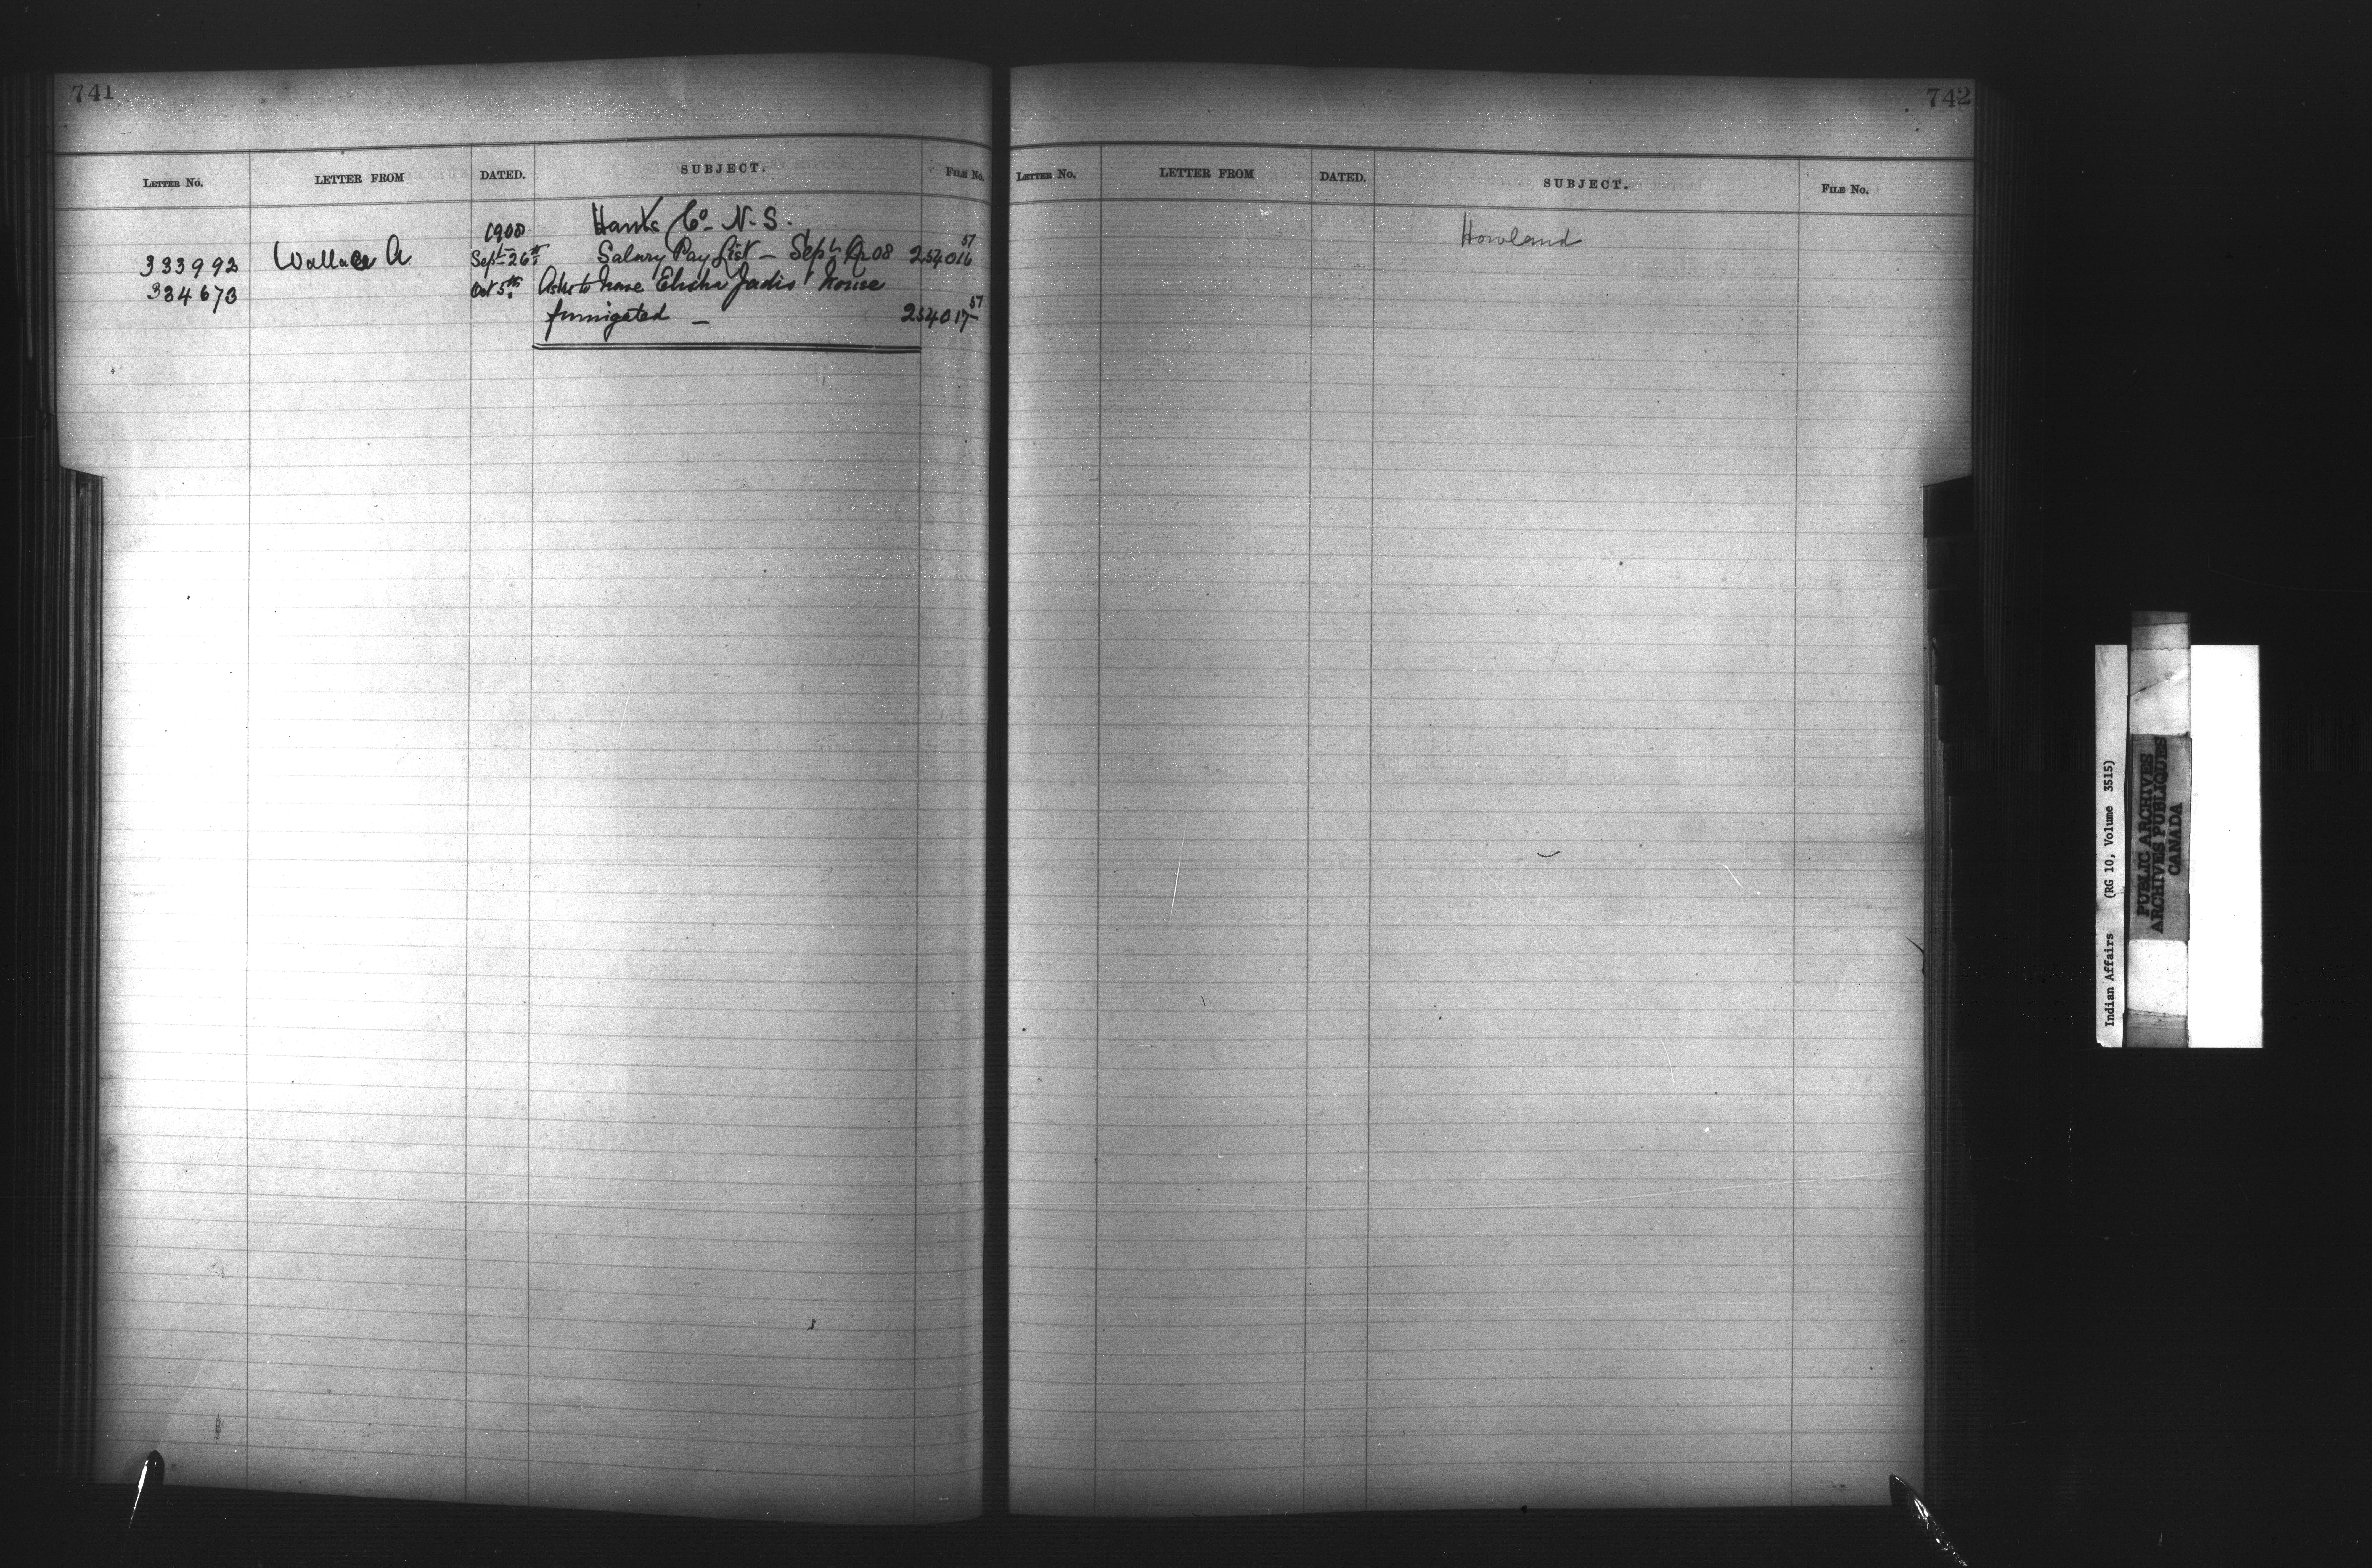 741
LETTER No. LETTER FROM DATED. SUBJECT. FILE No.
1908 Hants Co. N.S.
333992 Wallace A Sept 26th Salary Pay List - Sept Qr 08 254016 57
334673 Oct 5th Asks to have Elisha Jadis' house
fumigated - 254017 57
742
LETTER No. LETTER FROM DATED. SUBJECT. FILE No.
Howland
Indian Affairs (RG 10, Volume 3515)
PUBLIC ARCHIVES
ARCHIVES PUBLIQUES
CANADA